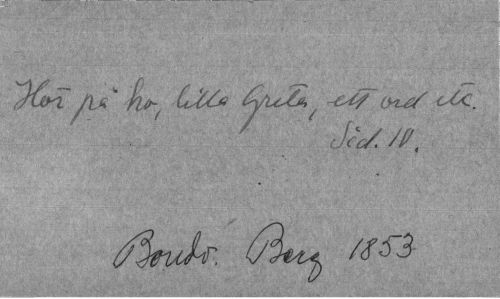 Hör på ho, lilla Greta, ett ord etc.
Sid. 10.
Bondv. Berg 1853